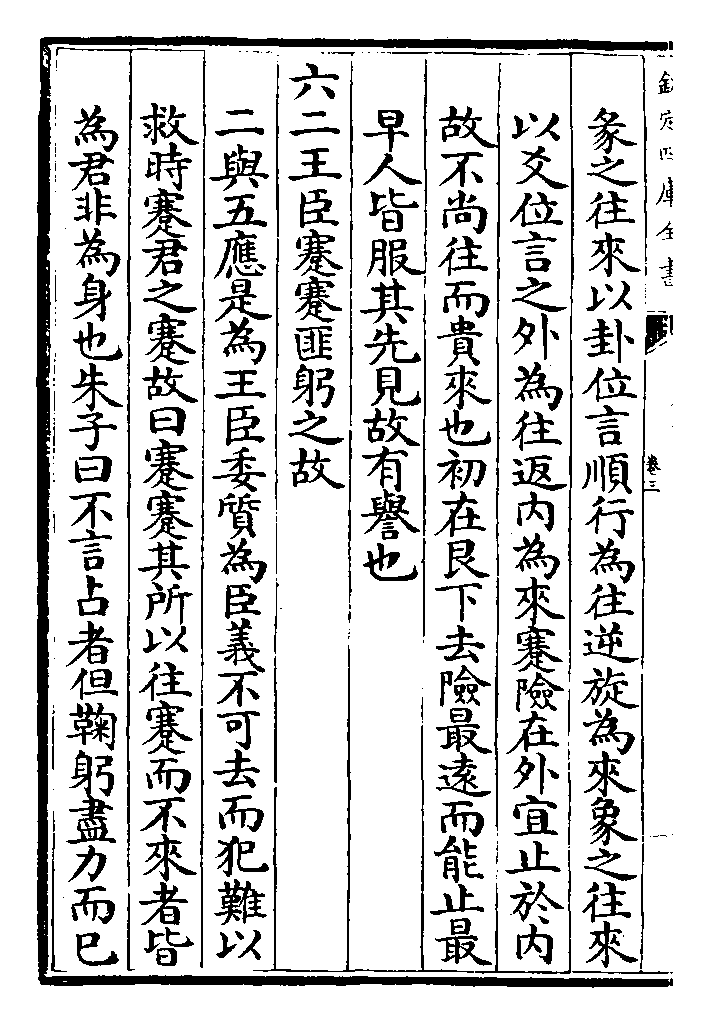 欽定四庫全書
卷三
彖之往來以卦位言順行為往逆旋為來象之往來
以爻位言之外為往返内為來蹇險在外宜止於内
故不尚往而貴來也初在艮下去險最逺而能止最
早人皆服其先見故有譽也
六二王臣蹇蹇匪躬之故
二與五應是為王臣委質為臣義不可去而犯難以
救時蹇君之蹇故曰蹇蹇其所以往蹇而不來者皆
為君非為身也朱子曰不言占者但鞠躬盡力而已